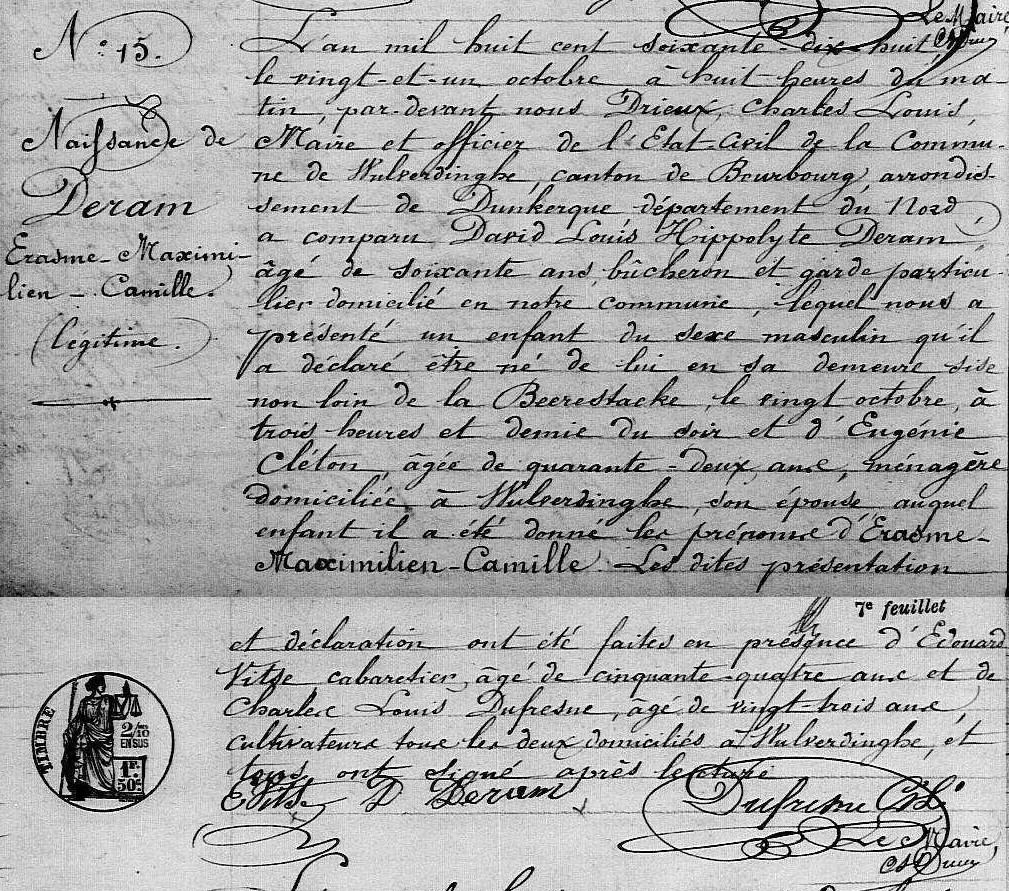 Le Maire
N° 15.
Naissance de
Deram
Erasme-Maximi-
lien-Camille.
(légitime.)
L'an mil huit cent soixante-dix-huit,
le vingt-et-un octobre à huit heures du ma-
tin, par-devant nous Drieux, Charles Louis,
Maire et officier de l'Etat-Civil de la Commu-
ne de Wulverdinghe, canton de Bourbourg, arrondis-
sement de Dunkerque département du Nord
a comparu David Louis Hippolyte Deram,
âgé de soixante ans, bûcheron et garde particu-
lier domicilié en notre commune, lequel nous a
présenté un enfant du sexe masculin qu'il
a déclaré être né de lui en sa demeure sise
non loin de la Beerestacke, le vingt octobre, à
trois heures et demie du soir et d'Eugénie
Cléton, âgée de quarante-deux ans, ménagère
domiciliée à Wulverdinghe, son épouse auquel
enfant il a été donné les prénoms d'Erasme-
Maximilien-Camille. Les dites présentation
7e feuillet
et déclaration ont été faites en présence d'Edouard
Vitse cabaretier, âgé de cinquante-quatre ans et de
Charles Louis Dufresne, agé de vingt-trois ans,
cultivateurs tous les deux domiciliés à Wulverdinghe, et
tous ont signé après lecture
E Vitse D Deram Dufresne Ch L.
Le Maire,
TIMBRE
2/10 EN SUS
1F. 50c